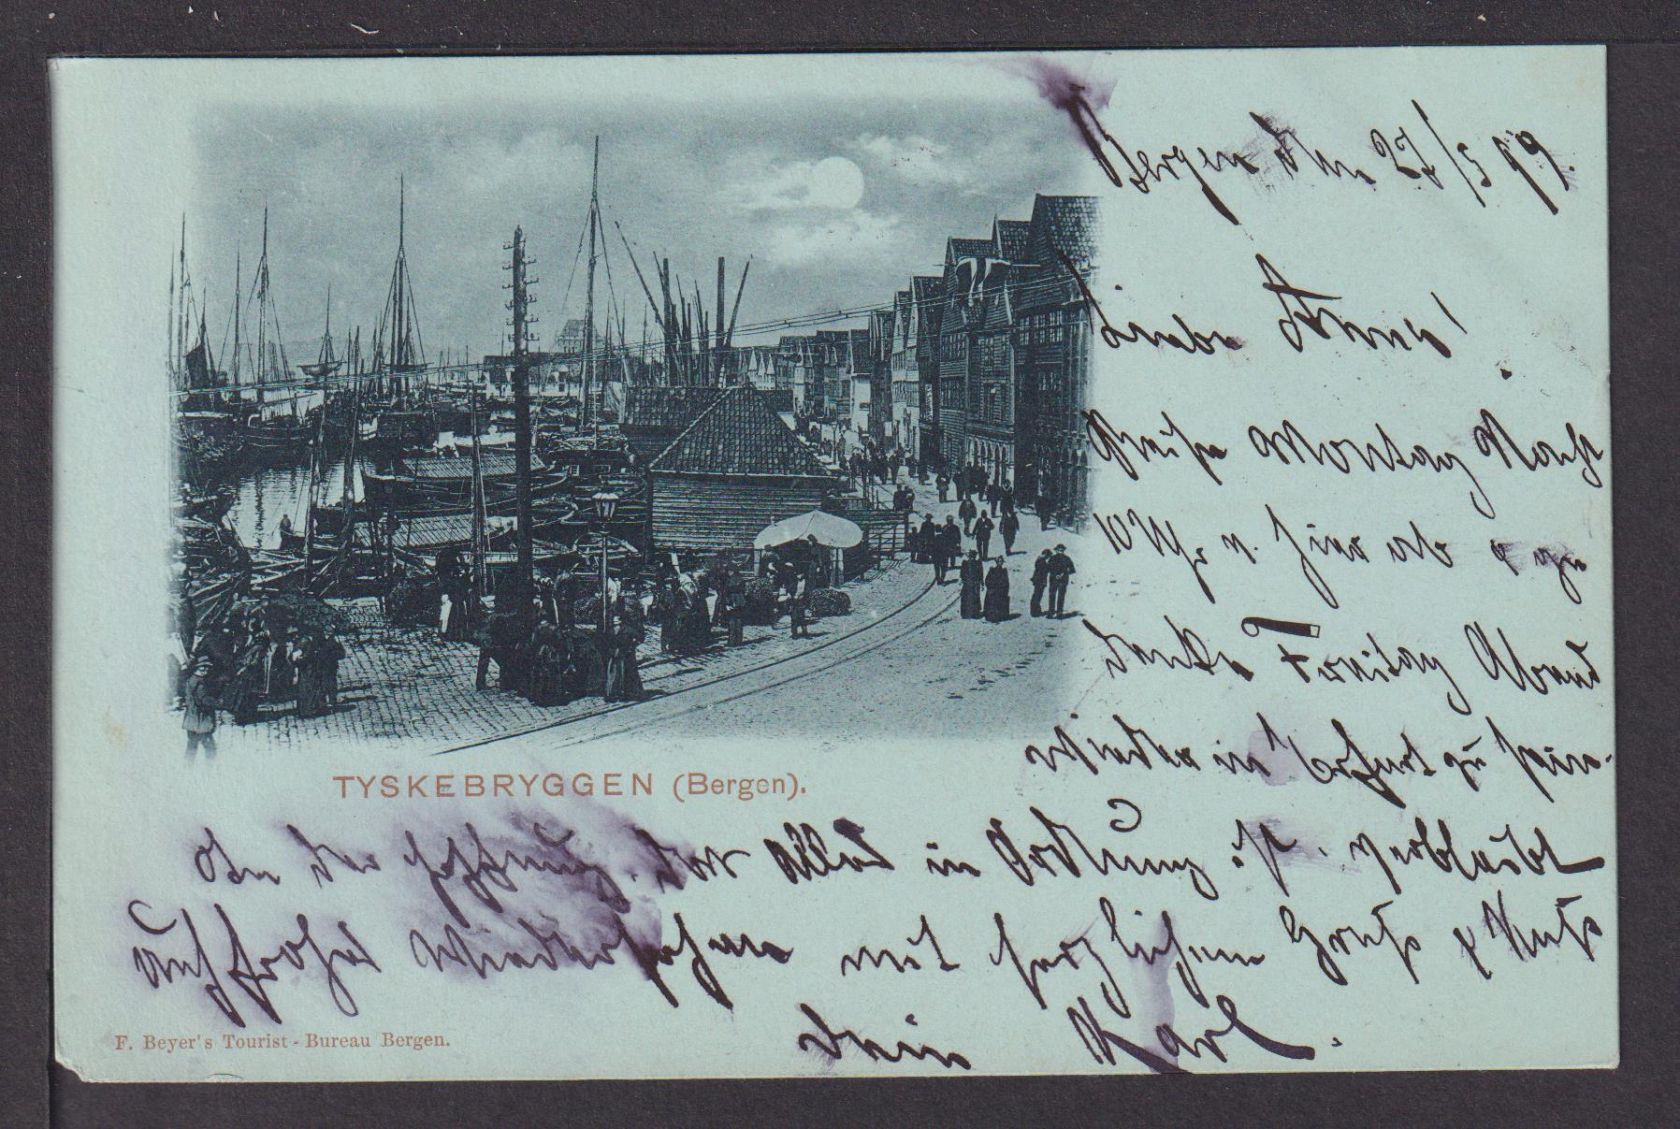 Bergen den 27/5 99.
Liebe Anna!
Reise Montag Nacht
10 Uhr v. hier ab & ge
denke Freitag Abend
wieder in Erfurt zu sein.
In der Hoffnung, das Alles in Ordnung ist, verbleibt
auf frohes Wiedersehen mit herzlichem Gruß & Kuß
Dein Karl.
TYSKEBRYGGEN (Bergen).
F. Beyer's Tourist - Bureau Bergen.